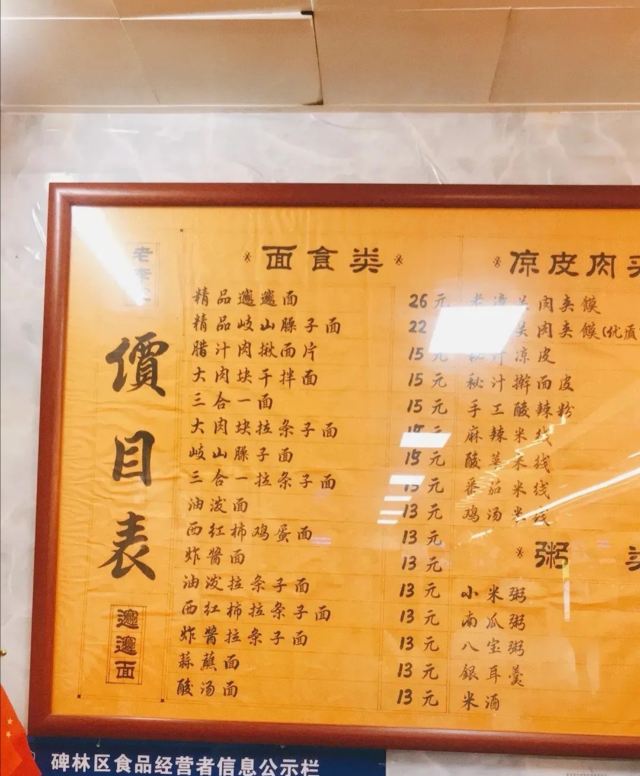 老
價目表
𰻞𰻞面
面食类
精品𰻞𰻞面 26元
精品岐山臊子面 22
腊汁肉揪面片 15元
大肉块干拌面 15元
三合一面 15元
大肉块拉条子面 元
岐山臊子面 15元
三合一拉条子面 元
油泼面 13元
西红柿鸡蛋面 13元
炸醬面 13元
油泼拉条子面 13元
西红柿拉条子面 13元
炸醬拉条子面 13元
蒜蘸面 13元
酸汤面 13元
凉皮肉夹
肉夹馍
肉夹馍(优质
秘汁凉皮
秘汁擀面皮
手工酸辣粉
麻辣米线
酸菜米线
番茄米线
鸡汤米线
粥 类
小米粥
南瓜粥
八宝粥
銀耳羹
米酒
碑林区食品经营者信息公示栏